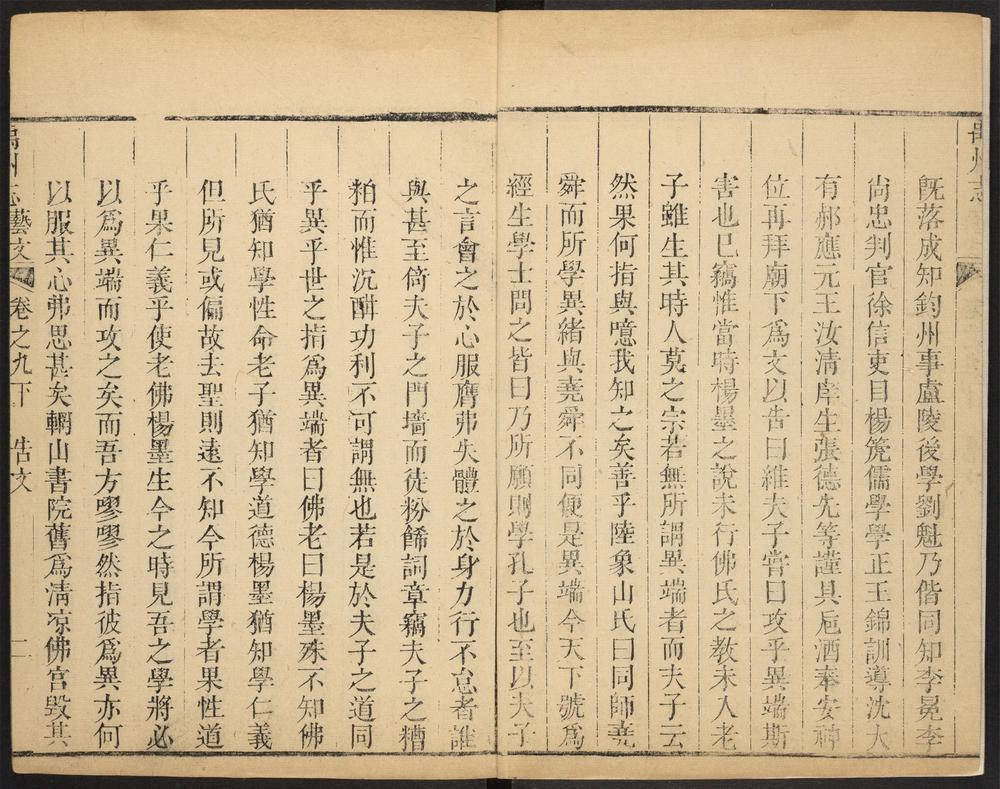 禹州志
既落成知鈞州事盧陵後學劉魁乃偕同知李冕李
尚忠判官徐信吏目楊筦儒學學正王錦訓導沈大
有郝應元王汝清庠生張德先等謹具巵酒奉安神
位再拜廟下爲文以告曰維夫子嘗曰攻乎異端斯
害也已竊惟當時楊墨之說未行佛氏之教未入老
子雖生其時人莫之宗若無所謂異端者而夫子云
然果何指與噫我知之矣善乎陸象山氏曰同師堯
舜而所學異緒與堯舜不同便是異端今天下號爲
經生學士問之皆曰乃所願則學孔子也至以夫子
之言會之於心服膺弗失體之於身力行不怠者誰
與甚至倚夫子之門墻而徒粉餙詞章竊夫子之糟
粕而惟沉酣功利不可謂無也若是於夫子之道同
乎異乎世之指爲異端者曰佛老曰楊墨殊不知佛
氏猶知學性命老子猶知學道德楊墨猶知學仁義
但所見或偏故去聖則遠不知今所謂學者果性道
乎果仁義乎使老佛楊墨生今之時見吾之學將必
以爲異端而攻之矣而吾方嘐嘐然指彼爲異亦何
以服其心弗思甚矣輞山書院舊爲清凉佛宮毀其
禹州志藝文 卷之九下 告文 二